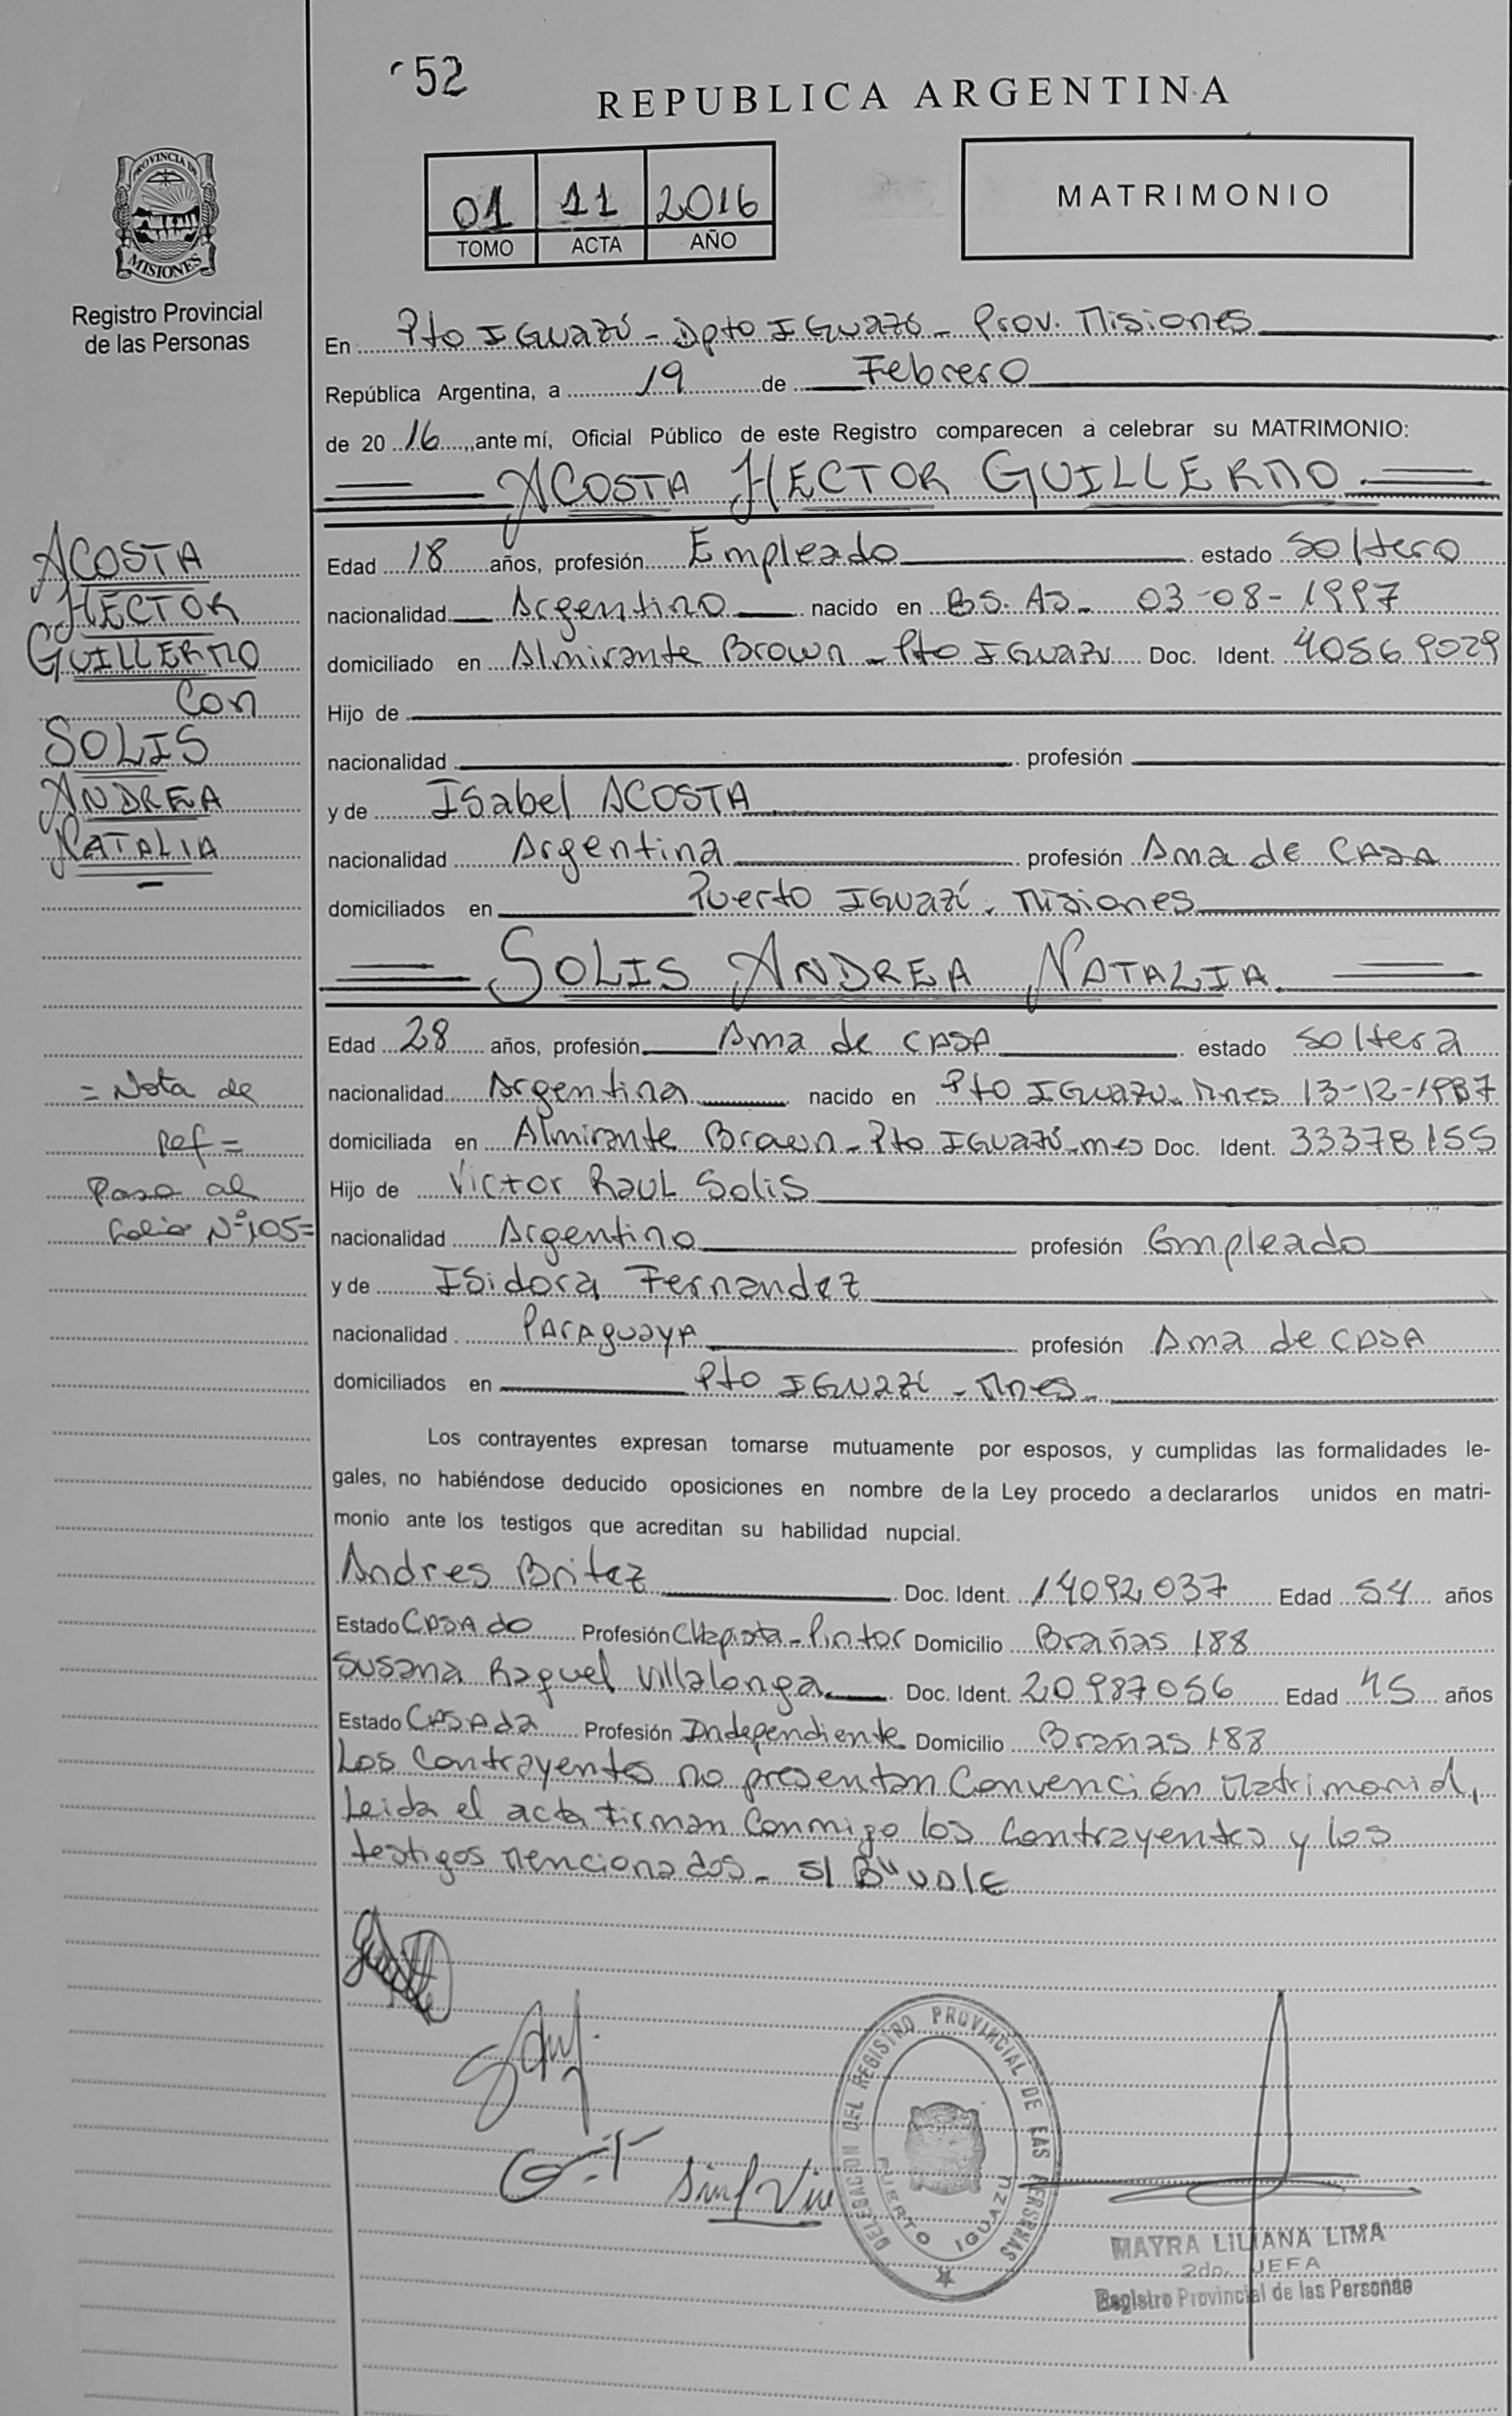 52
REPUBLICA ARGENTINA
PROVINCIA DE
MISIONES
Registro Provincial
de las Personas
01 11 2016
TOMO ACTA AÑO
MATRIMONIO
En Pto IGuazú - Dpto IGuazú - Prov. Misiones
República Argentina, a 19 de Febrero
de 20 16, ante mí, Oficial Público de este Registro comparecen a celebrar su MATRIMONIO:
ACOSTA HECTOR GUILLERMO
Edad 18 años, profesión Empleado estado Soltero
nacionalidad Argentino nacido en BS. AS. 03-08-1997
domiciliado en Almirante Brown - Pto IGuazu Doc. Ident. 40569029
Hijo de
nacionalidad profesión
y de Isabel ACOSTA
nacionalidad Argentina profesión Ama de CASA
domiciliados en Puerto IGuazú. Misiones
SOLIS ANDREA NATALIA
Edad 28 años, profesión Ama de CASA estado Soltera
nacionalidad Argentina nacido en Pto IGuazu - Mnes 13-12-1987
domiciliada en Almirante Brown - Pto IGuazú - mes Doc. Ident. 33378155
Hijo de Victor Raul Solis
nacionalidad Argentino profesión Empleado
y de Isidora Fernandez
nacionalidad Paraguaya profesión Ama de CASA
domiciliados en Pto IGuazú - Mnes
Los contrayentes expresan tomarse mutuamente por esposos, y cumplidas las formalidades le-
gales, no habiéndose deducido oposiciones en nombre de la Ley procedo a declararlos unidos en matri-
monio ante los testigos que acreditan su habilidad nupcial.
Andres Britez Doc. Ident. 14092.037 Edad 54 años
Estado CASAdo Profesión CHapista - Pintor Domicilio Brañas 188
Susana Raquel Villalonga Doc. Ident. 20987056 Edad 45 años
Estado CASAda Profesión Independiente Domicilio Brañas 188
Los Contrayentes no presentan Convención Matrimonial,
Leida el acta firman Conmigo los Contrayentes y los
testigos Mencionados -
ACOSTA
HECTOR
GUILLERMO
Con
SOLIS
ANDREA
NATALIA
= Nota de
Ref =
Pasa al
folio Nº 105 =
DELEGACION DEL REGISTRO PROVINCIAL DE LAS PERSONAS
PUERTO IGUAZU
MAYRA LILIANA LIMA
2do. JEFA
Registro Provincial de las Personas